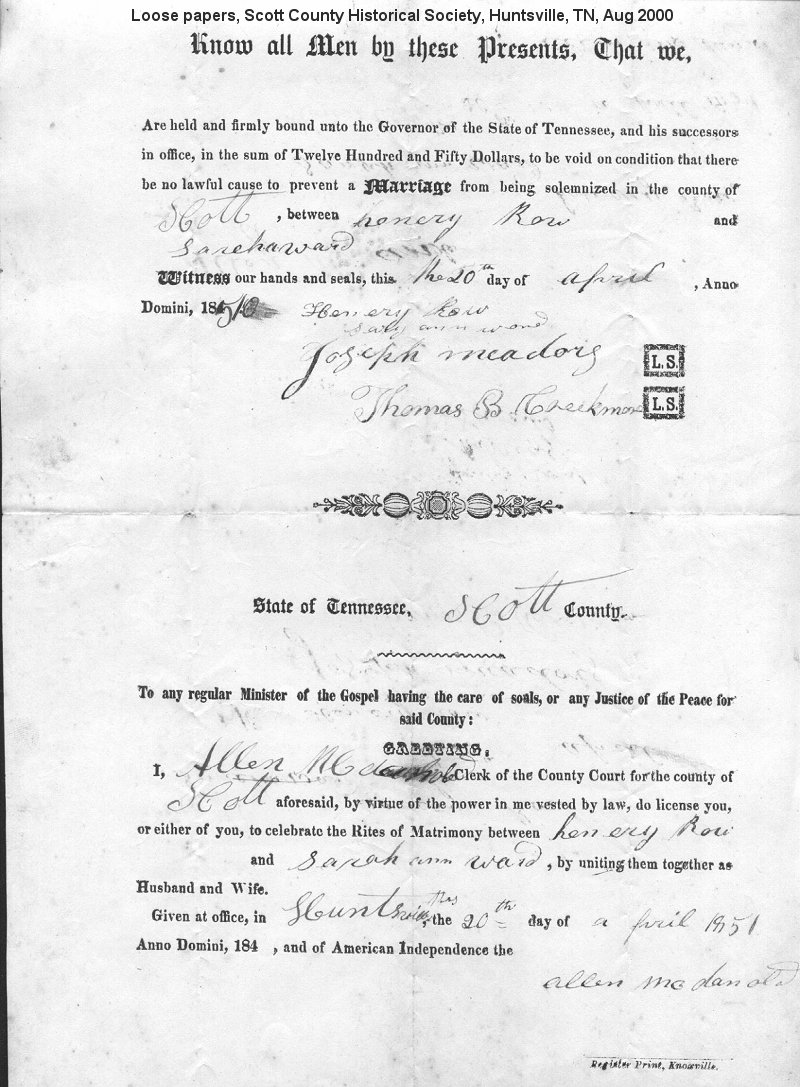 Loose papers, Scott County Historical Society, Huntsville, TN, Aug 2000
Know all Men by these Presents, That we,
Are held and firmly bound unto the Governor of the State of Tennessee, and his successors
in office, in the sum of Twelve Hundred and Fifty Dollars, to be void on condition that there
be no lawful cause to prevent a Marriage from being solemnized in the county of
Scott , between henery Row and
Sarehaward
Witness our hands and seals, this the 20th day of april , Anno
Domini, 184
Henery Row
sary ann word
Joseph meadors L.S.
Thomas B Creekmore L.S.
State of Tennessee, Scott County.
To any regular Minister of the Gospel having the care of souls, or any Justice of the Peace for
said County:
GREETING,
I, Allen Mc Clerk of the County Court for the county of
Scott aforesaid, by virtue of the power in me vested by law, do license you,
or either of you, to celebrate the Rites of Matrimony between henery Row
and Sarah ann ward , by uniting them together as
Husband and Wife.
Given at office, in Huntsville, the 20th day of a pril 1851
Anno Domini, 184 , and of American Independence the
allen mcdanold
Register Print, Knoxville.